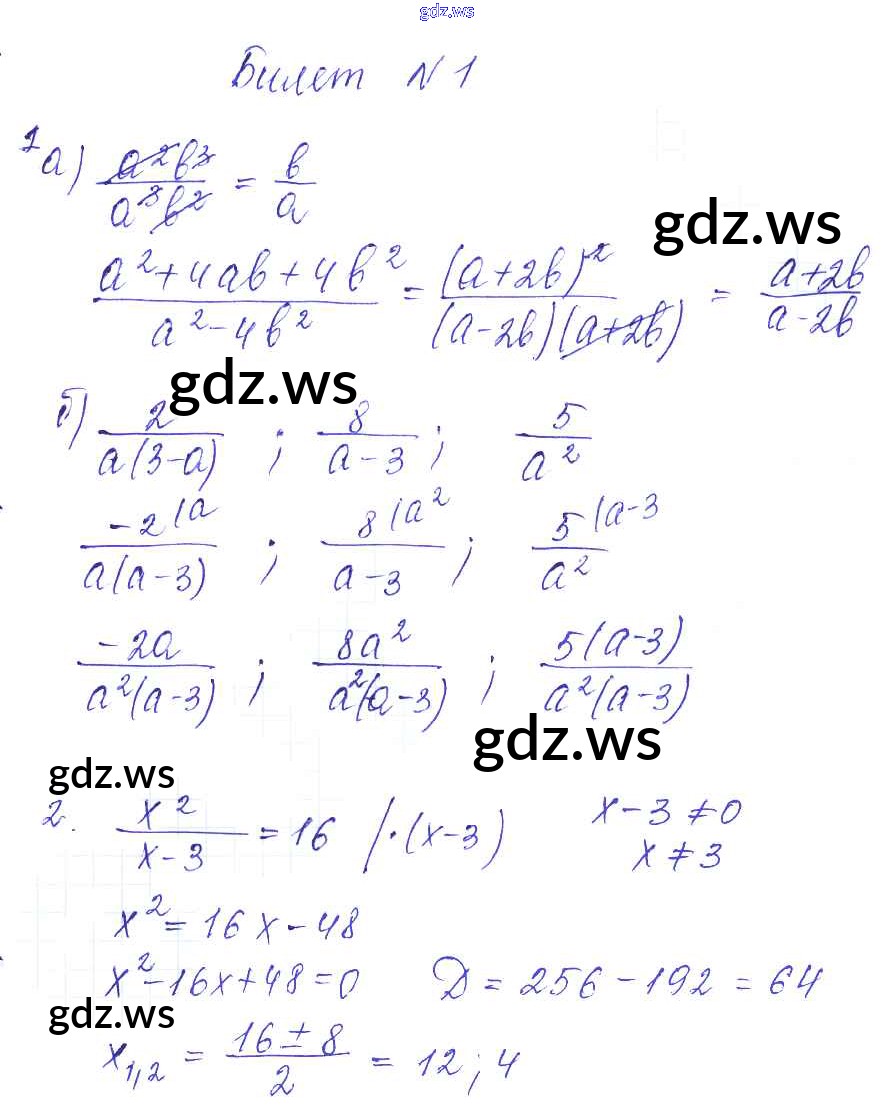 gdz.ws
Билет N 1
1 а) a²b³/a³b² = b/a
gdz.ws
(a²+4ab+4b²)/(a²-4b²) = (a+2b)²/((a-2b)(a+2b)) = (a+2b)/(a-2b)
gdz.ws
б) 2/(a(3-a)) ; 8/(a-3) ; 5/a²
-2/(a(a-3)) (a ; 8/(a-3) (a² ; 5/a² (a-3
-2a/(a²(a-3)) ; 8a²/(a²(a-3)) ; 5(a-3)/(a²(a-3))
gdz.ws
gdz.ws
2. x²/(x-3) = 16 /·(x-3) x-3≠0
x≠3
x² = 16x-48
x²-16x+48=0 D = 256-192 = 64
gdz.ws
x1,2 = (16±8)/2 = 12; 4